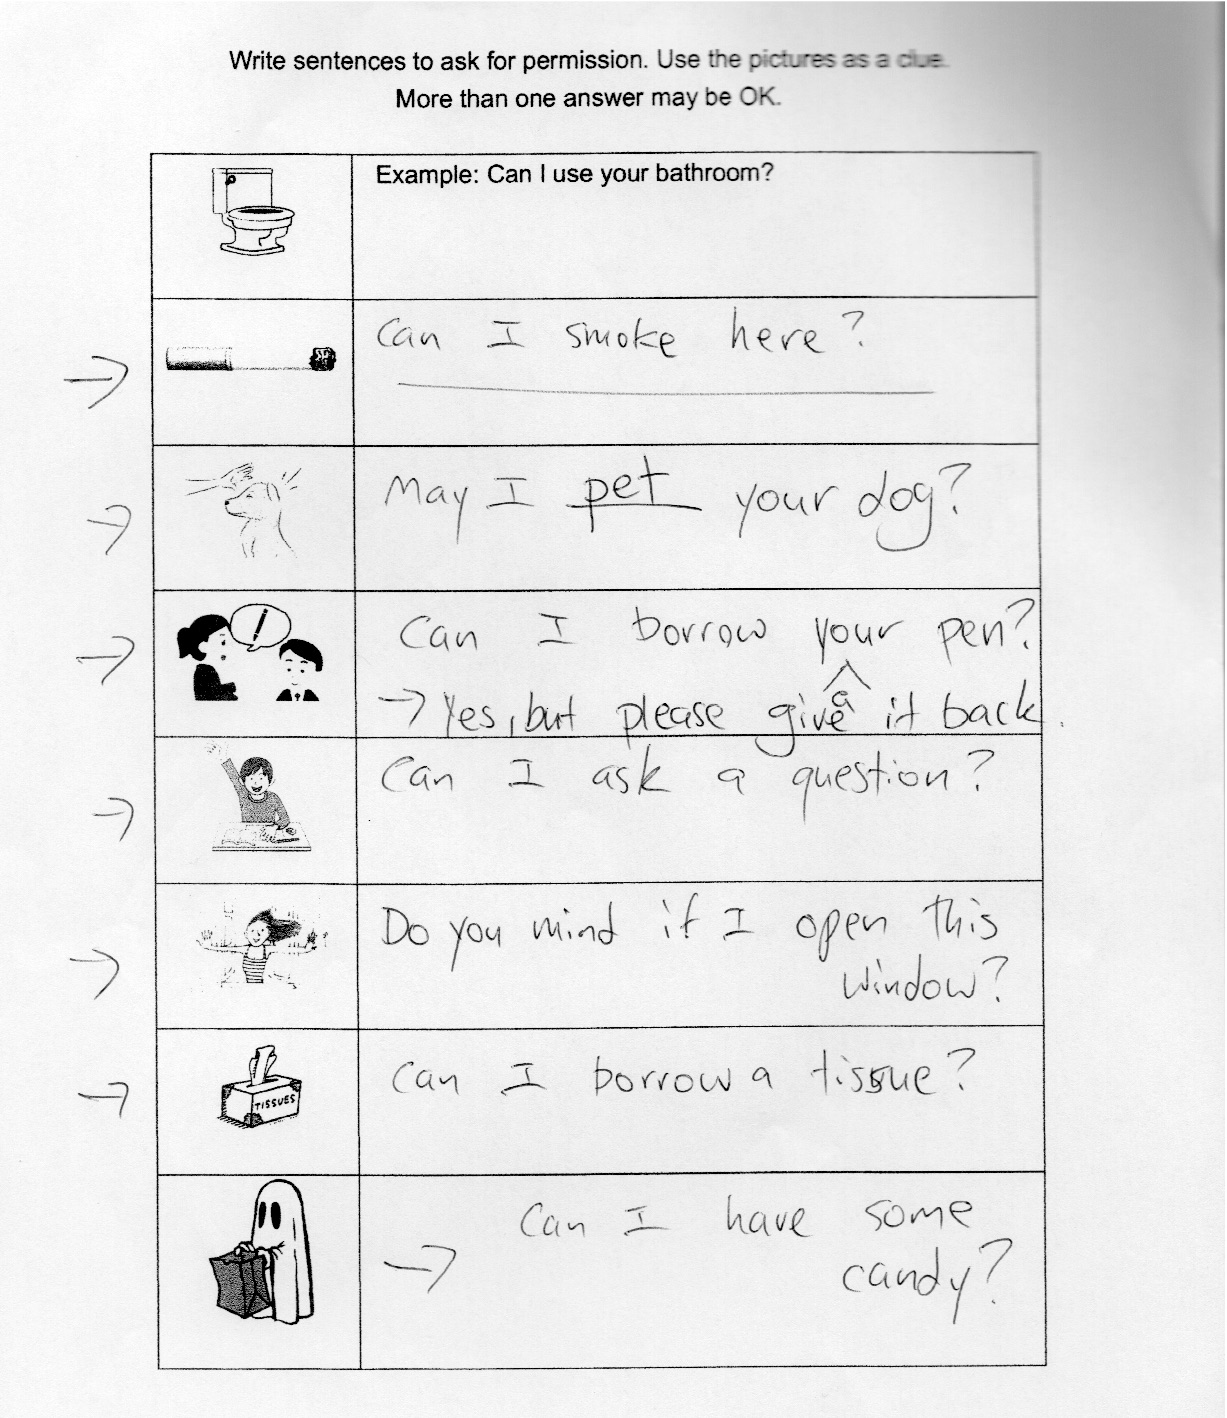 Write sentences to ask for permission. Use the pictures as a clue.
More than one answer may be OK.
Example: Can I use your bathroom?
Can I smoke here?
May I pet your dog?
Can I borrow your pen?
a
→ Yes, but please give it back.
Can I ask a question?
Do you mind if I open this
window?
TISSUES
Can I borrow a tissue?
Can I have some
→ candy?